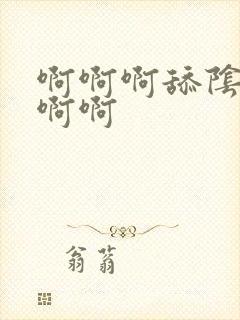 啊啊啊舔陰
啊啊
翁蓊